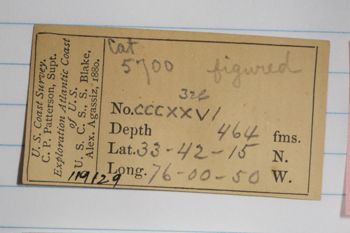 U. S. Coast Survey.
C. P. Patterson, Supt.
Exploration Atlantic Coast
of U. S.
U. S. C. S. S. Blake,
Alex. Agassiz, 1880.
119129
Cat
5700 figured
326
No. CCCXXVI
Depth 464 fms.
Lat. 33-42-15 N.
Long. 76-00-50 W.